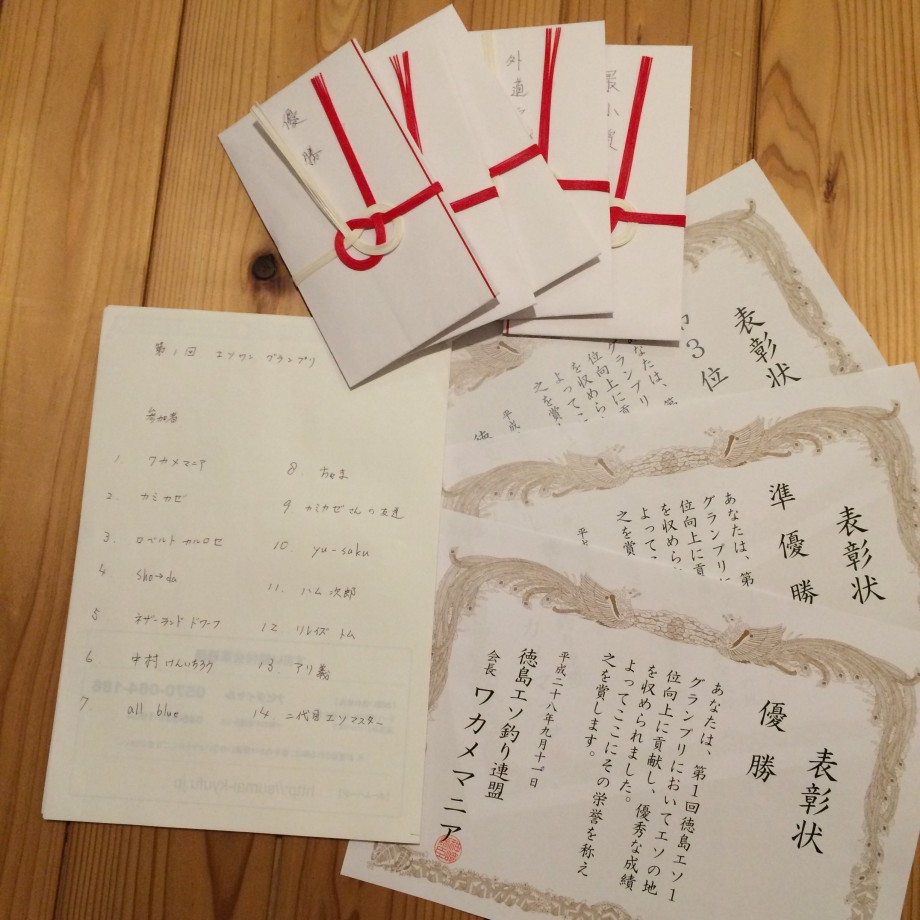 優勝
外道
最小賞
第1回 エソワン グランプリ
参加者
1. ワカメマニア
2. カミカゼ
3. ロベルト カルロセ
4 sho→da
5 ネザーランド ドワーフ
6 中村 けんいちろう
7 all blue
8. ちゃま
9 カミカゼさんの友達
10. yu-saku
11. ハム次郎
12 リレイズ トム
13. アリ義
14. 二代目エソマスター
表彰状
3位
あなたは、第
グランプリ
位向上に
を収めら
よってこ
之を賞
平成
表彰状
準優勝
あなたは、第
グランプリに
位向上に貢
を収められ
よってここ
之を賞
表彰状
優勝
あなたは、第1回徳島エソ1
グランプリにおいてエソの地
位向上に貢献し、優秀な成績
を収められました。
よってここにその栄誉を称え
之を賞します。
平成二十八年九月十一日
徳島エソ釣り連盟
会長 ワカメマニア